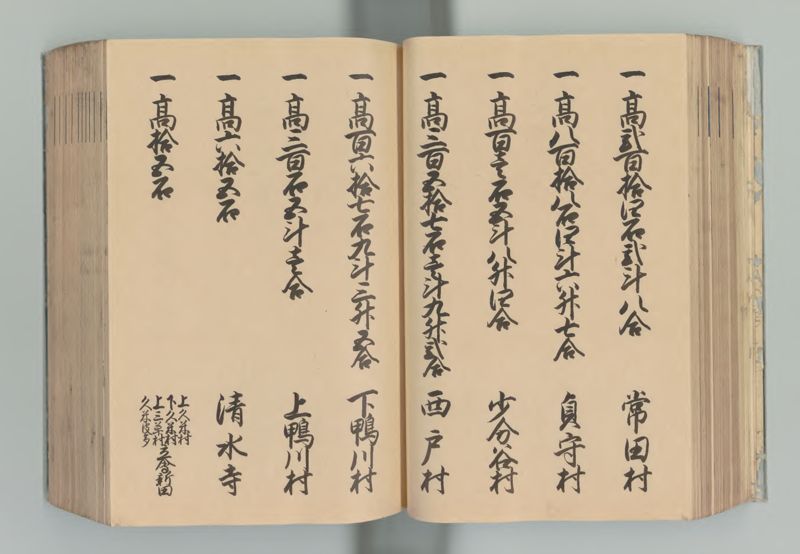 一 高弐百拾四石弐斗八合 常田村
一 高八百拾八石四斗六升七合 貞守村
一 高百壱石五斗八升四合 少分谷村
一 高三百五拾七石壱斗九升弐合 西戸村
一 高百六拾七石九斗三升五合 下鴨川村
一 高三百石五斗壱合 上鴨川村
一 高六拾五石 清水寺
一 高拾五石
上久米村
下久米村
上三草村
久米 新田